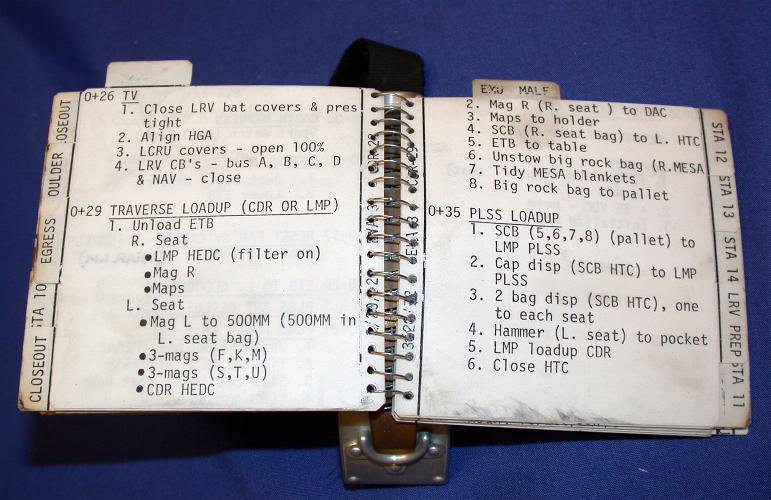 0+26 TV
1. Close LRV bat covers & pres
tight
2. Align HGA
3. LCRU covers - open 100%
4. LRV CB's - bus A, B, C, D
& NAV - close
0+29 TRAVERSE LOADUP (CDR OR LMP)
1. Unload ETB
R. Seat
●LMP HEDC (filter on)
●Mag R
●Maps
L. Seat
●Mag L to 500MM (500MM in
L. seat bag)
●3-mags (F,K,M)
●3-mags (S,T,U)
●CDR HEDC
OSEOUT
OULDER
EGRESS
STA 10
CLOSEOUT
EMU MALF
2. Mag R (R. seat ) to DAC
3. Maps to holder
4. SCB (R. seat bag) to L. HTC
5. ETB to table
6. Unstow big rock bag (R.MESA
7. Tidy MESA blankets
8. Big rock bag to pallet
0+35 PLSS LOADUP
1. SCB (5,6,7,8) (pallet) to
LMP PLSS
2. Cap disp (SCB HTC) to LMP
PLSS
3. 2 bag disp (SCB HTC), one
to each seat
4. Hammer (L. seat) to pocket
5. LMP loadup CDR
6. Close HTC
STA 12
STA 13
STA 14
LRV PREP
STA 11